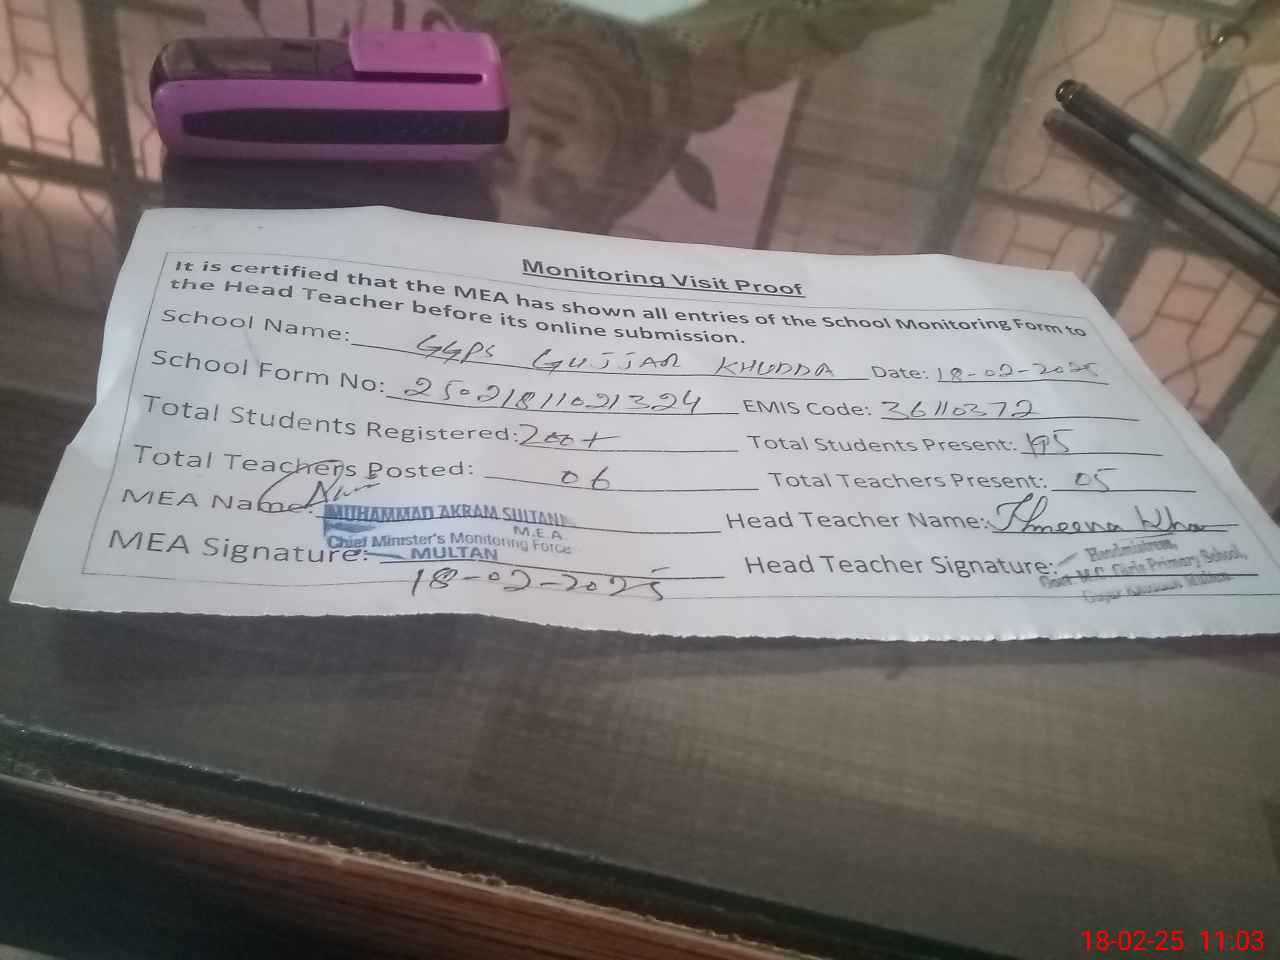 Monitoring Visit Proof
It is certified that the MEA has shown all entries of the School Monitoring Form to
the Head Teacher before its online submission.
School Name: GGPS GUJJAR KHUDDA Date: 18-02-2025
School Form No: 25021811021324 EMIS Code: 36110372
Total Students Registered: 200+ Total Students Present: 195
Total Teachers Posted: 06 Total Teachers Present: 05
MEA Name: MUHAMMAD AKRAM SULTANI Head Teacher Name:
M.E.A
Chief Minister's Monitoring Force
MULTAN
MEA Signature: Head Teacher Signature:
Headmistress,
Govt M.C Girls Primary School,
18-02-2025
18-02-25 11:03